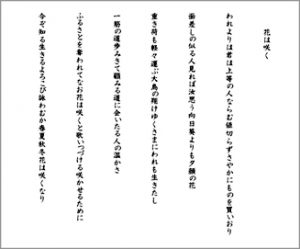 花は咲く
われよりは君は上等の人ならむ値切らずさやかにものを買いおり
面差しの似る人見れば汝思う向日葵よりも夕顔の花
重き荷も軽々運ぶ大鳥の翔けゆくさまにわれも生きたし
一筋の遊歩みきて顧みる道に会いたる人の温かさ
ふるさとを奪われてなお花は咲くと歌いつづける咲かせるために
今ぞ知る生きるよろこび詠わむか春夏秋冬花は咲くなり